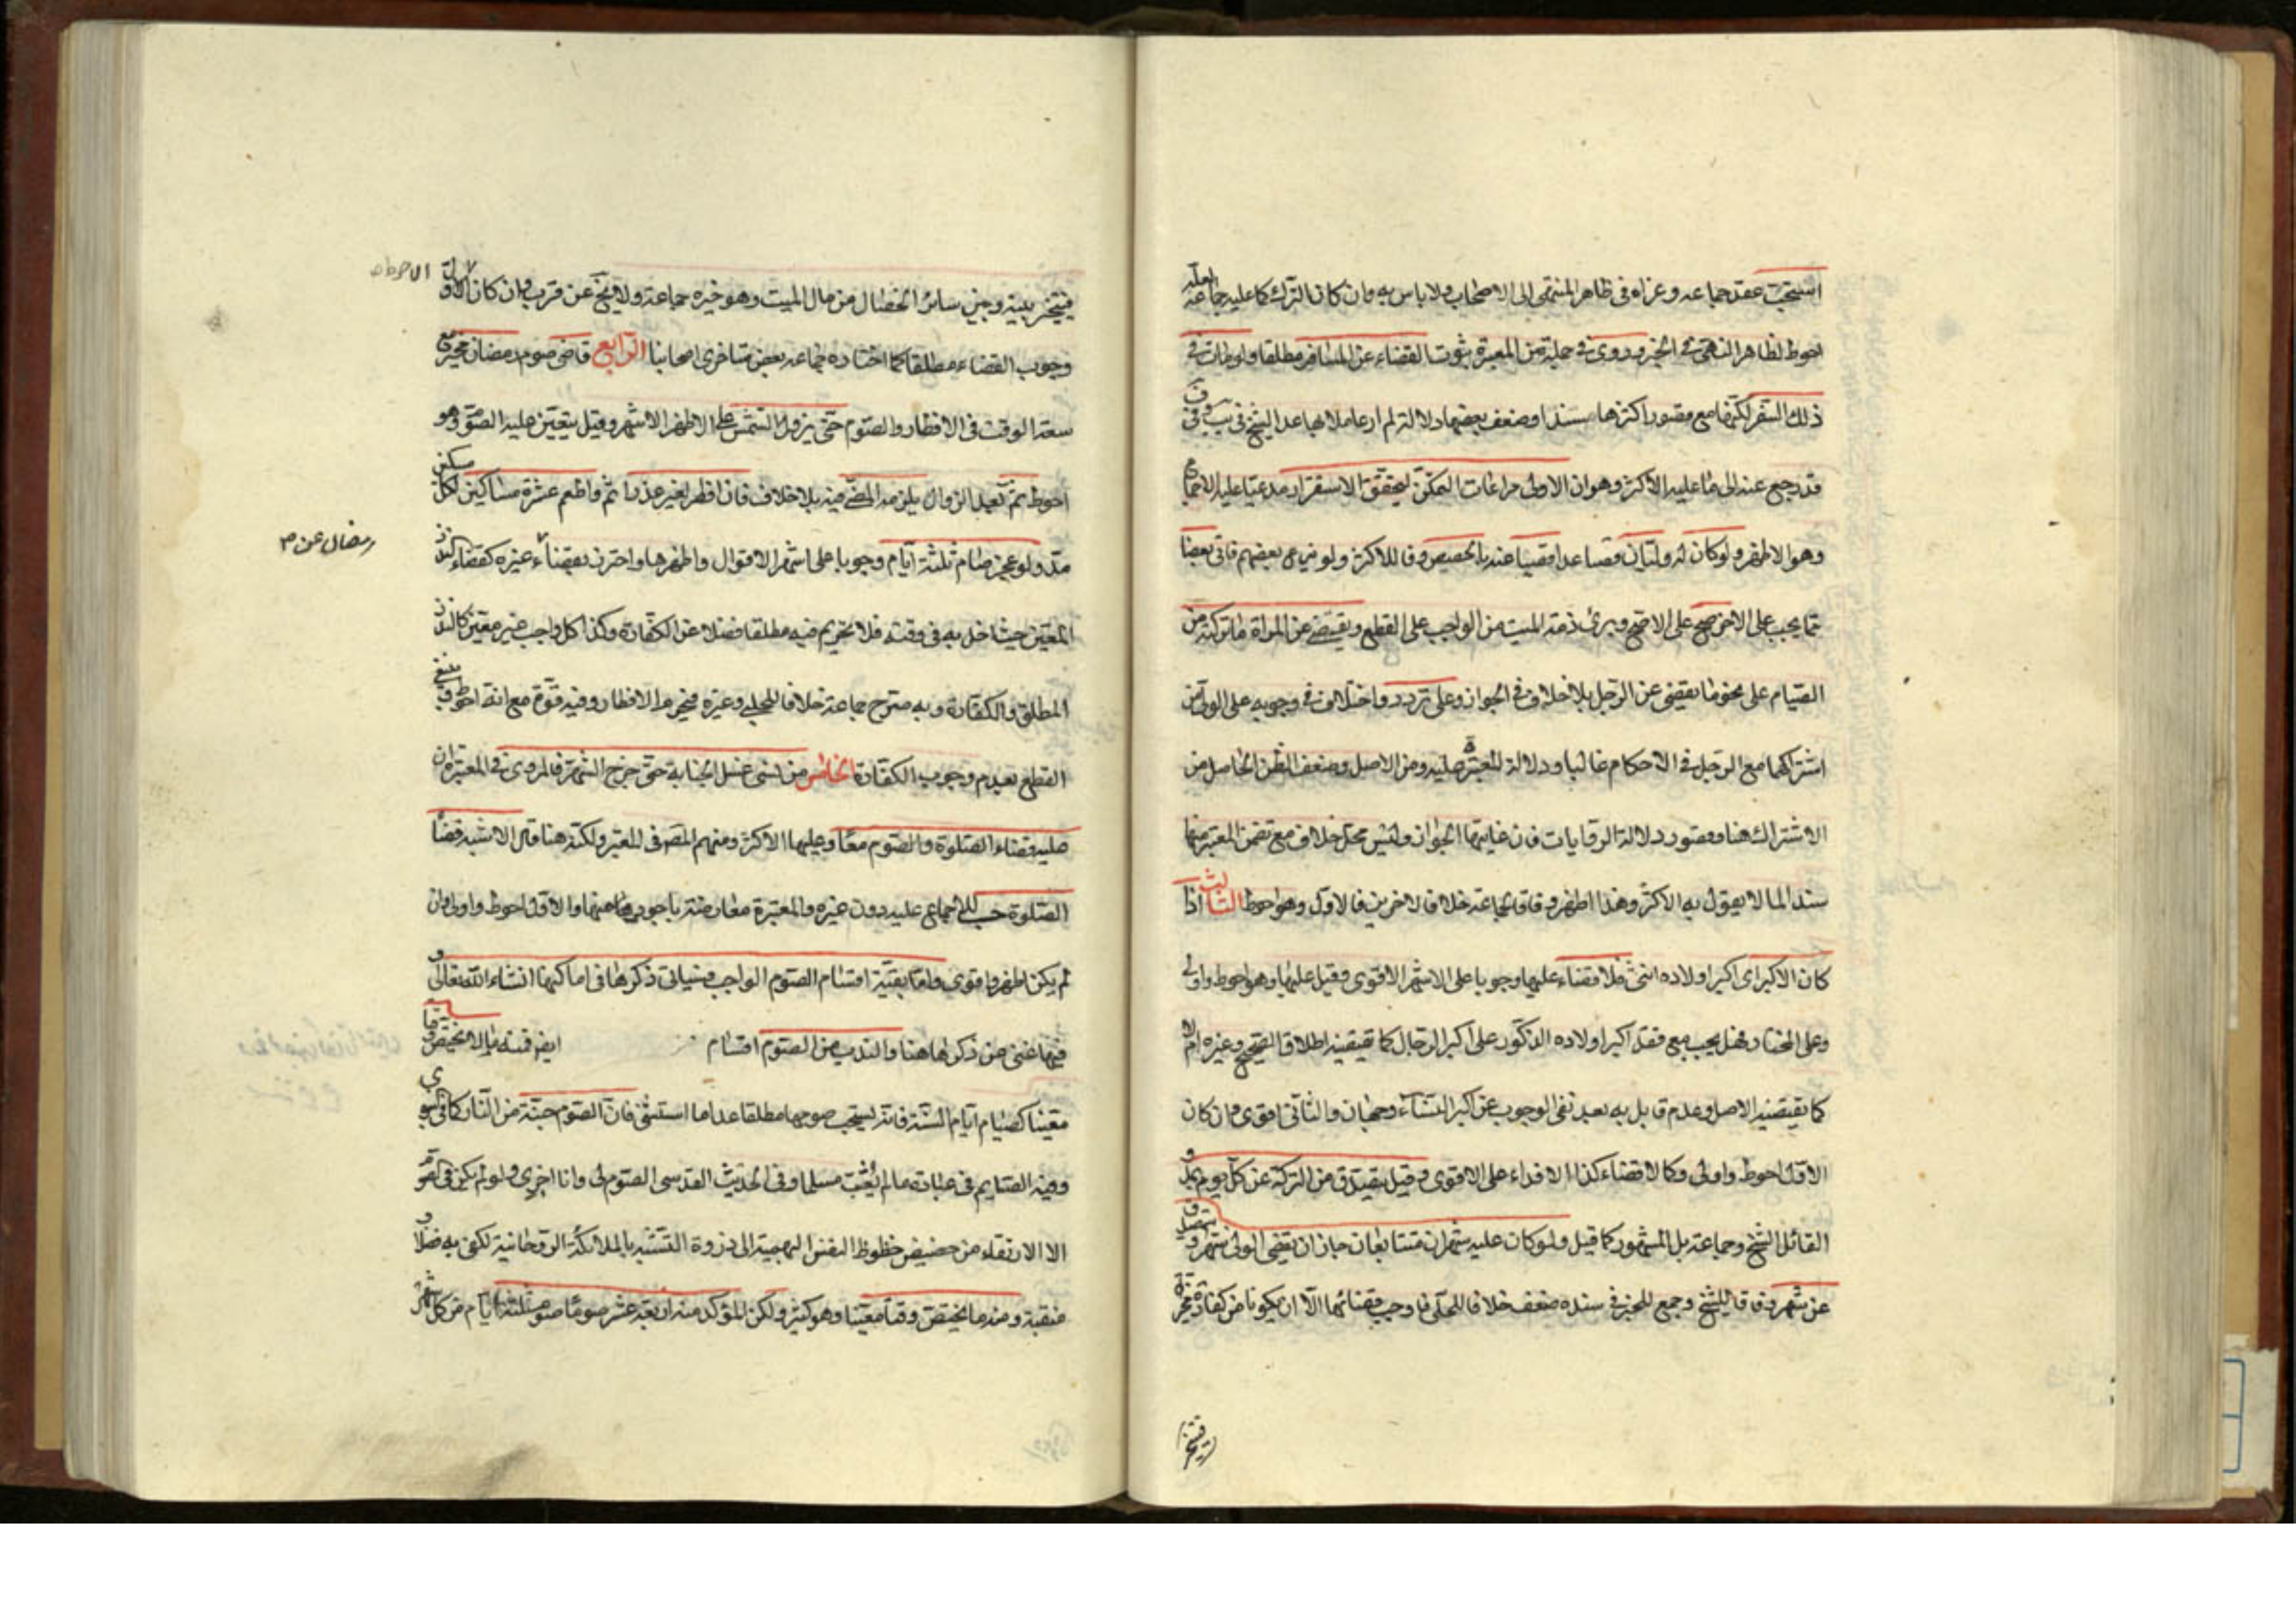 استحبّ عقد جماعة وعزاه فى ظاهر المنتهى الى الاصحاب ولا باس به وان كان الترك كما عليه جماعة
احوط لظاهر النهى فى الخبر وروى فى جملة من المعتبرة ثبوت القضاء عن المسافر مطلقا ولو مات فى
ذلك السفر لكنها مع قصور اكثرها سندا وضعف بعضها دلالة لم ار عاملا بها عدا الشيخ فى يب وفى
قد رجع عنه الى ما عليه الاكثر وهو ان الاولى مراعات التمكّن ليتحقق الاستقرار مدعيا عليه الاجماع
وهو الاظهر ولو كان له وليّان فصاعدا قضيا عنه بالحصص وفاقا للاكثر ولو تبرع بعضهم فاتى بعضا
مما يجب على الاخر صح على الاصح ويبرئ ذمة الميت من الواجب على القطع ويقضى عن المراة ما تركته من
الصيام على نحو ما يقضى عن الرجل بلا خلاف فى الجواز وعلى تردد واختلاف فى وجوبه على الولى من
اشتراكهما مع الرجل فى الاحكام غالبا ودلالة المعتبرة عليه ومن الاصل وضعف الظن الحاصل من
الاشتراك هنا وقصور دلالة الروايات فان غايتها الجواز وليس محل خلاف مع تضمن المعتبر منها
سندا لما لا يقول به الاكثر وهذا اظهر وفاقا لجماعة خلافا لاخرين فالاول وهو احوط الثالث اذا
كان الاكبر اى اكبر اولاده انثى فلا قضاء عليها وجوبا على الاشهر الاقوى وقيل عليها وهو احوط واولى
وعلى المختار فهل يجب مع فقد اكبر اولاده الذكور على اكبر الرجال كما يقتضيه اطلاق الصحيح وغيره ام لا
كما يقتضيه الاصل وعدم قايل به بعد نفى الوجوب عن اكبر النساء وجهان والثانى اقوى وان كان
الاول احوط واولى وكما لا قضاء كذا لا فداء على الاقوى وقيل يتصدق من التركة عن كل يوم بمد و
القائل الشيخ وجماعة بل المشهور كما قيل ولو كان عليه شهران متتابعان جاز ان يقضى الولى شهرا ويتصدق
عن شهر وفاقا للشيخ وجمع للخبر فى سنده ضعف خلافا للحلى فاوجب قضائهما الا ان يكونا من كفارة مخيرة
فيتخير
فيتخير بينه وبين سائر الخصال من مال الميت وهو خيرة جماعة ولا يخ عن قرب وان كان الاول
الاحوط
وجوب القضاء مطلقا كما اختاره جماعة بعض متاخرى اصحابنا الرابع قاضى صوم رمضان مخير مع
سعة الوقت فى الافطار والصوم حتى يزول الشمس على الاظهر الاشهر وقيل يتعين عليه الصوم وهو
احوط ثم بعد الزوال يلزمه المضى فيه بلا خلاف فان افطر لغير عذر اثم واطعم عشرة مساكين لكل مسكين
مدّ ولو عجز صام ثلثة ايّام وجوبا على اشهر الاقوال واظهرها واحترز بقضاء غيره كقضاء النذر
رمضان عن
المعين حيث اخل به فى وقته فلا تحريم فيه مطلقا فضلا عن الكفارة وكذا كل واجب غير معين كالنذر
المطلق والكفارة وبه صرح جماعة خلافا للحلبى وغيره فحرموا الافطار وفيه قوة مع انه احوط و
القطع بعدم وجوب الكفارة الخامس من نسى غسل الجنابة حتى خرج الشهر فالمروى فى المعتبرة ان
عليه قضاء الصلوة والصوم معا وعليها الاكثر ومنهم المصّ فى المعتبر ولكنه هنا قال الاشبه قضا
الصلوة حسب للاجماع عليه دون غيره والمعتبرة معارضة باجود هما والاول احوط واولى وان
لم يكن اظهر واقوى وامّا بقيّة اقسام الصوم الواجب فسياتى ذكرها فى اماكنها انشاء الله تعالى و
فيها غنى عن ذكرها هنا والندب من الصوم اقسام
معينا كصيام ايّام السنة فانه يستحب صومها مطلقا عدا ما استثنى فان الصوم جنّة من النار كما فى النبوى
وفيه الصايم فى عبادة ما لم يغتب مسلما وفى الحديث القدسى الصوم لى وانا اجزى به ولو لم يكن فى الصوم
الا الارتقاء من حضيض حظوظ النفس البهيمية الى ذروة التشبه بالملائكة الروحانية لكفى به فضلا و
منقبة ومنه ما يختص وقتا معينا وهو كثير ولكن المؤكد منه اربعة عشر صوما صوم ثلثة ايّام من كل شهر